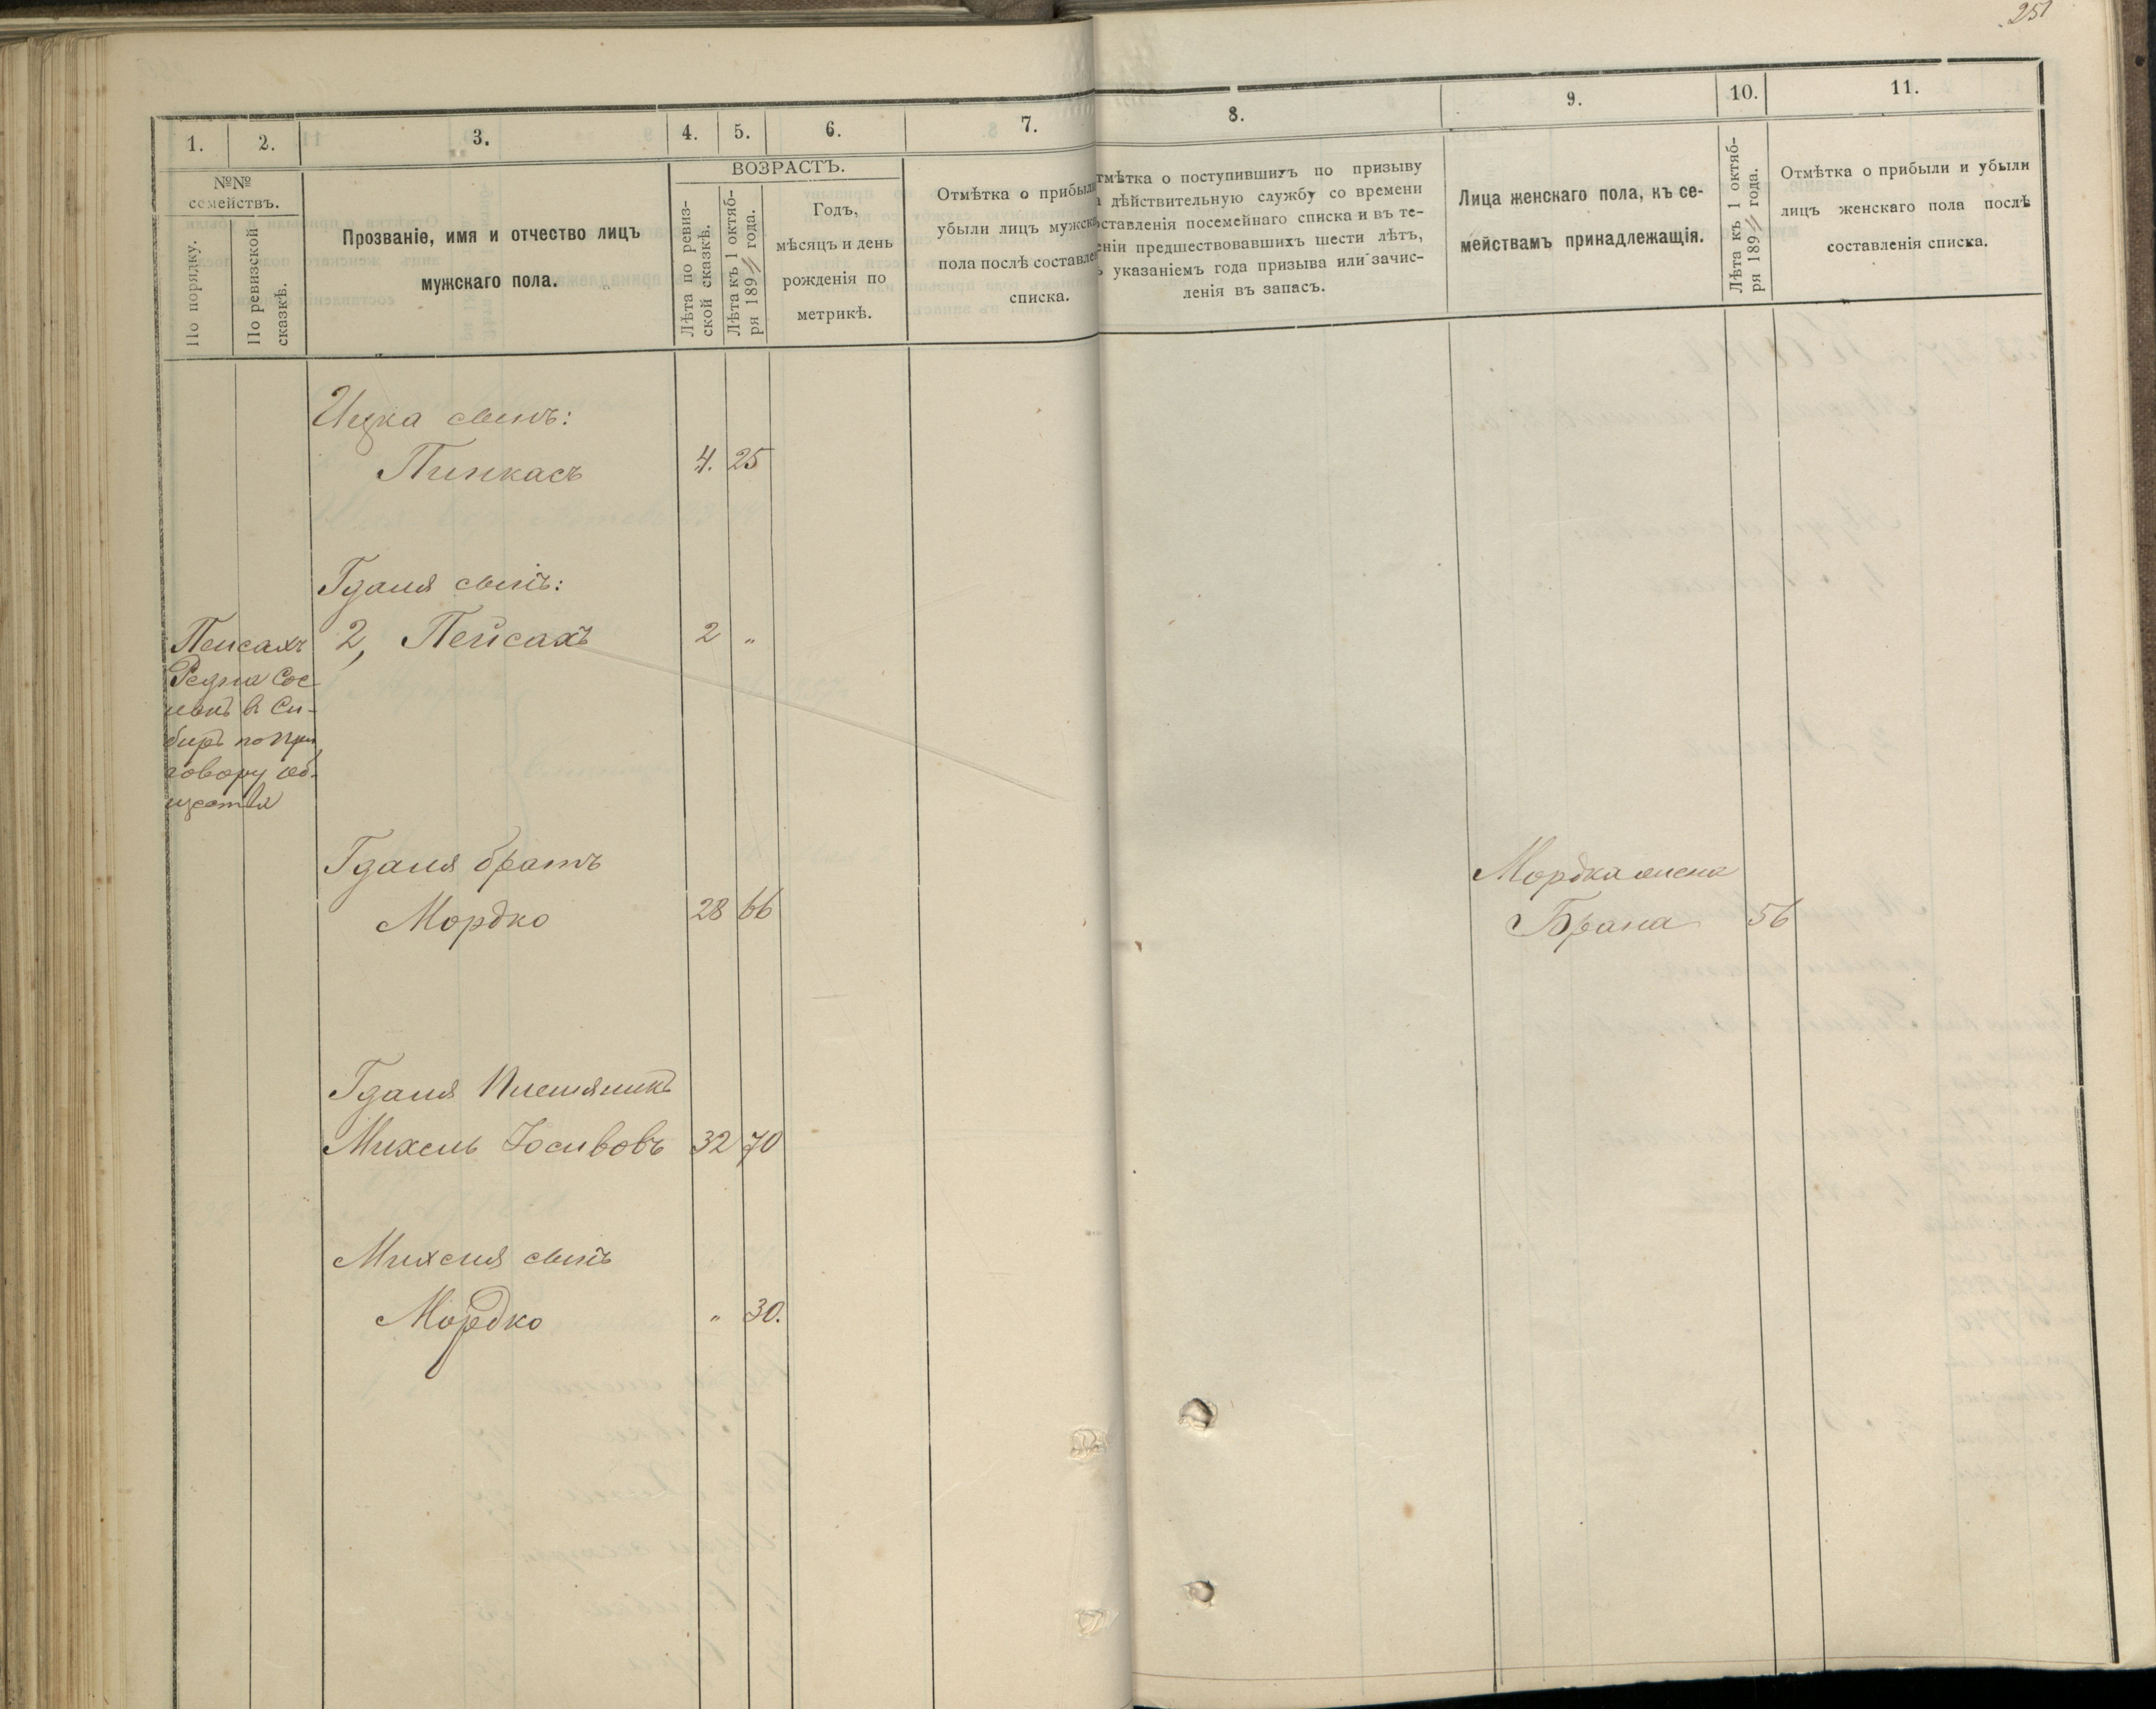 251
1.
2.
3.
4.
5.
6.
7.
8.
9.
10.
11.
№№ семействъ.
По порядку.
По ревизской сказкѣ.
Прозваніе, имя и отчество лицъ
мужскаго пола.
ВОЗРАСТЪ.
Лѣта по ревиз-
ской сказкѣ.
Лѣта къ 1 октяб-
ря 189 года.
Годъ,
мѣсяцъ и день
рожденія по
метрикѣ.
Отмѣтка о прибыли
убыли лицъ мужск
пола послѣ составле
списка.
тмѣтка о поступившихъ по призыву
дѣйствительную службу со времени
оставленія посемейнаго списка и въ те-
еніи предшествовавшихъ шести лѣтъ,
указаніемъ года призыва или зачис-
ленія въ запасъ.
Лица женскаго пола, къ се-
мействамъ принадлежащія.
Лѣта къ 1 октяб-
ря 189 года.
Отмѣтка о прибыли и убыли
лицъ женскаго пола послѣ
составленія списка.
Ицка сынъ:
Пинкасъ 4. 25
Гдаля сынъ:
2, Пейсахъ 2 "
Пейсахъ
Сос
ланъ въ Си-
бирь по при
говору об-
щества
Гдаля братъ
Мордко 28 66
Мордка жена
Брана 56
Гдаля племяникъ
Михель Іосивовъ 32 70
Михеля сынъ
Мордко " 30.